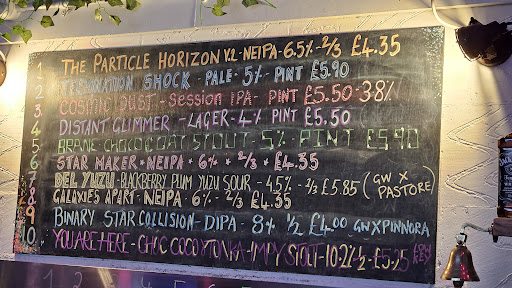 1 THE PARTICLE HORIZON V.2 - NEIPA - 6.5% - 2/3 £4.35
2 TERMINATION SHOCK - PALE - 5% - PINT £5.90
3 COSMIC DUST - SESSION IPA - PINT £5.50 - 3.8%
4 DISTANT GLIMMER - LAGER - 4% PINT £5.50
5 BRANE CHOCO OAT STOUT - 5% - PINT £5.90
6 STAR MAKER • NEIPA • 6% • 2/3 • £4.35
7 DEL YUZU - BLACKBERRY PLUM YUZU SOUR - 4.5% - 2/3 £5.85 (GW X PASTORE)
8 GALAXIES APART - NEIPA - 6% - 2/3 £4.35
9 BINARY STAR COLLISION - DIPA - 8% 1/2 £4.00 GWXPINNORA
10 YOU ARE HERE - CHOC COCO XTONKA - IMPY STOUT - 10.2% 1/2 - £5.25